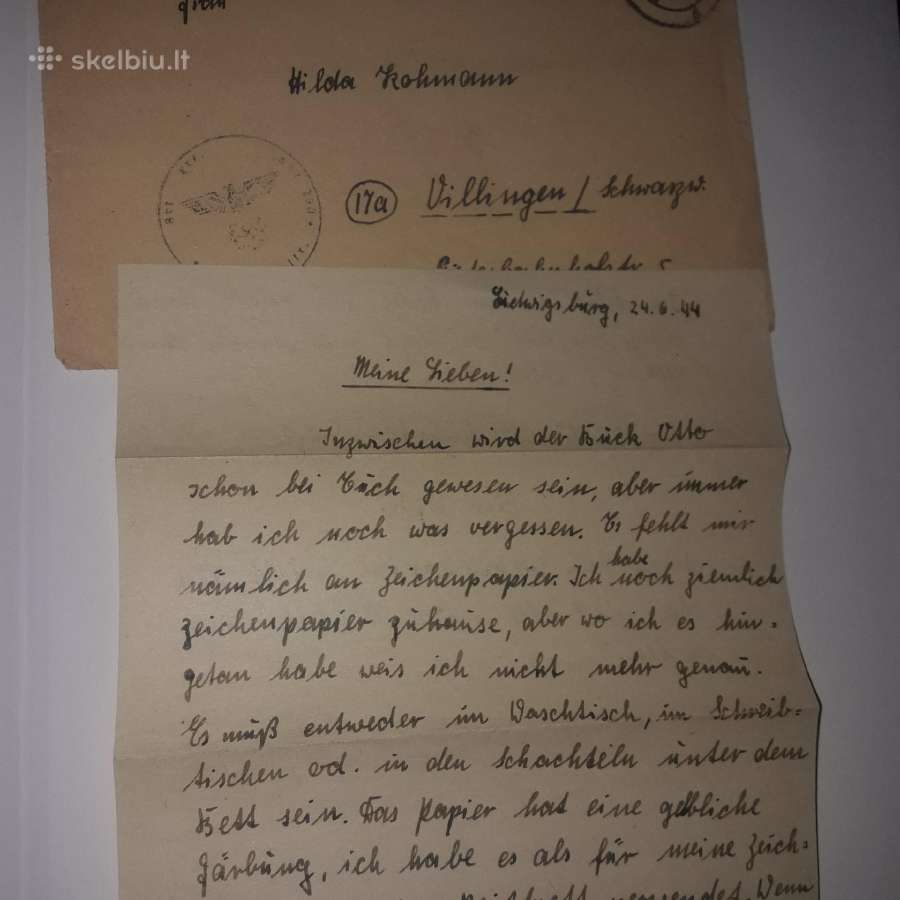 skelbiu.lt
Hilda Kohmann
17a Villingen / Schwarzw.
Ludwigsburg, 24.6.44
Meine Lieben!
Inzwischen wird der Buck Otto
schon bei Euch gewesen sein, aber immer
hab ich noch was vergessen. Es fehlt mir
nämlich an Zeichenpapier. Ich habe noch ziemlich
zeichenpapier zuhause, aber wo ich es hin-
getan habe weis ich nicht mehr genau.
Es muß entweder im Waschtisch, im Schreib-
tischen od. in den Schachteln unter dem
Bett sein. Das Papier hat eine gelbliche
Färbung, ich habe es als für meine Zeich-
verwendet. Wenn